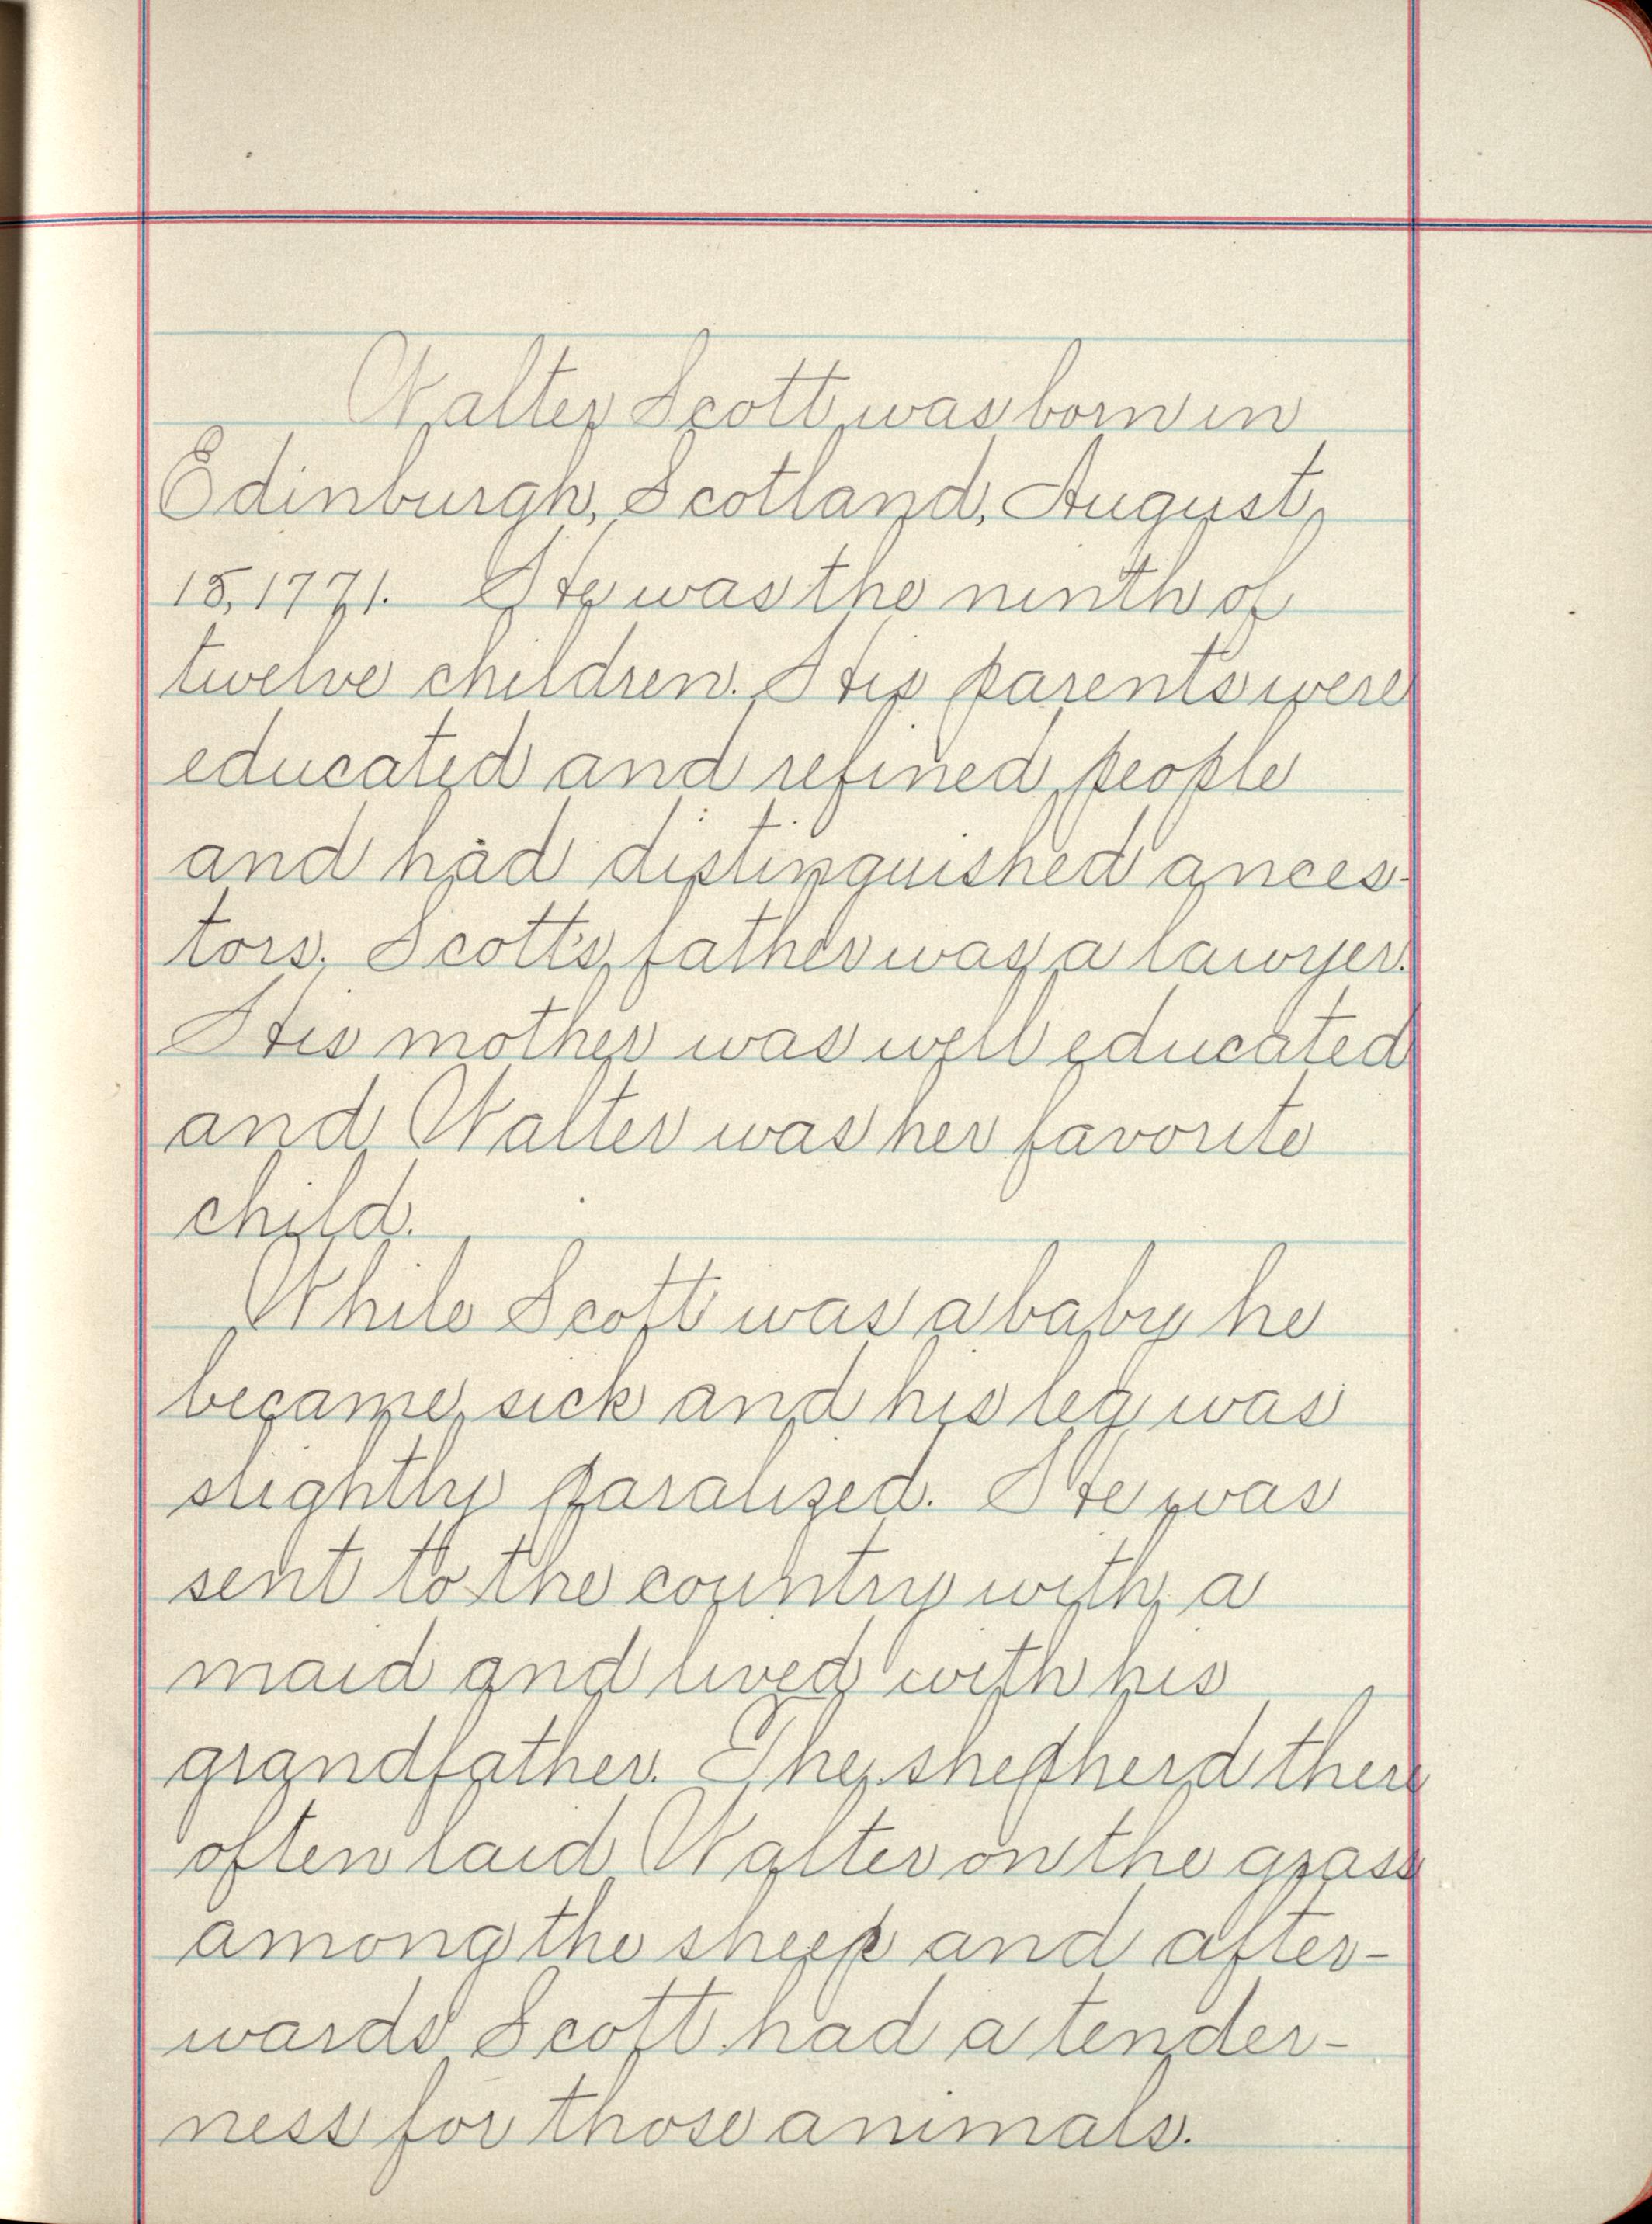 Walter Scott was born in
Edinburgh, Scotland, August
15, 1771. He was the ninth of
twelve children. His parents were
educated and refined people
and had distinguished ances-
tors. Scott's father was a lawyer.
His mother was well educated
and Walter was her favorite
child.
While Scott was a baby he
became sick and his leg was
slightly paralized. He was
sent to the country with a
maid and lived with his
grandfather. The shepherd there
often laid Walter on the grass
among the sheep and after-
wards Scott had a tender-
ness for those animals.